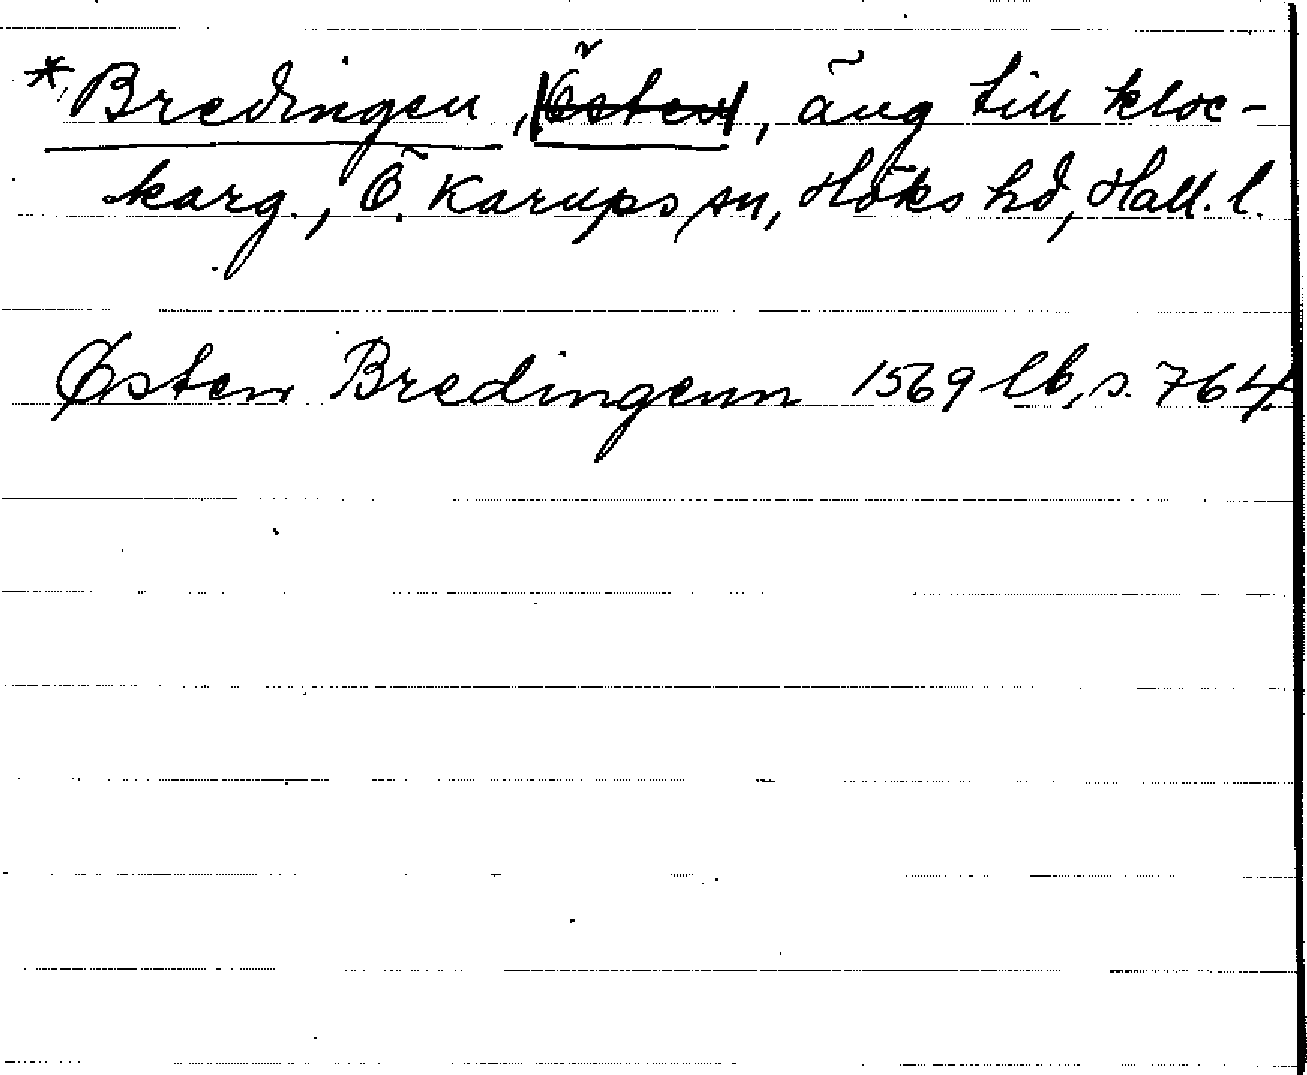 *Bredingen, Östen, äng till kloc-
karg., Ö. Karups sn, Höks hd, Hall. l.
Østen Bredingenn 1569 lb, s. 764